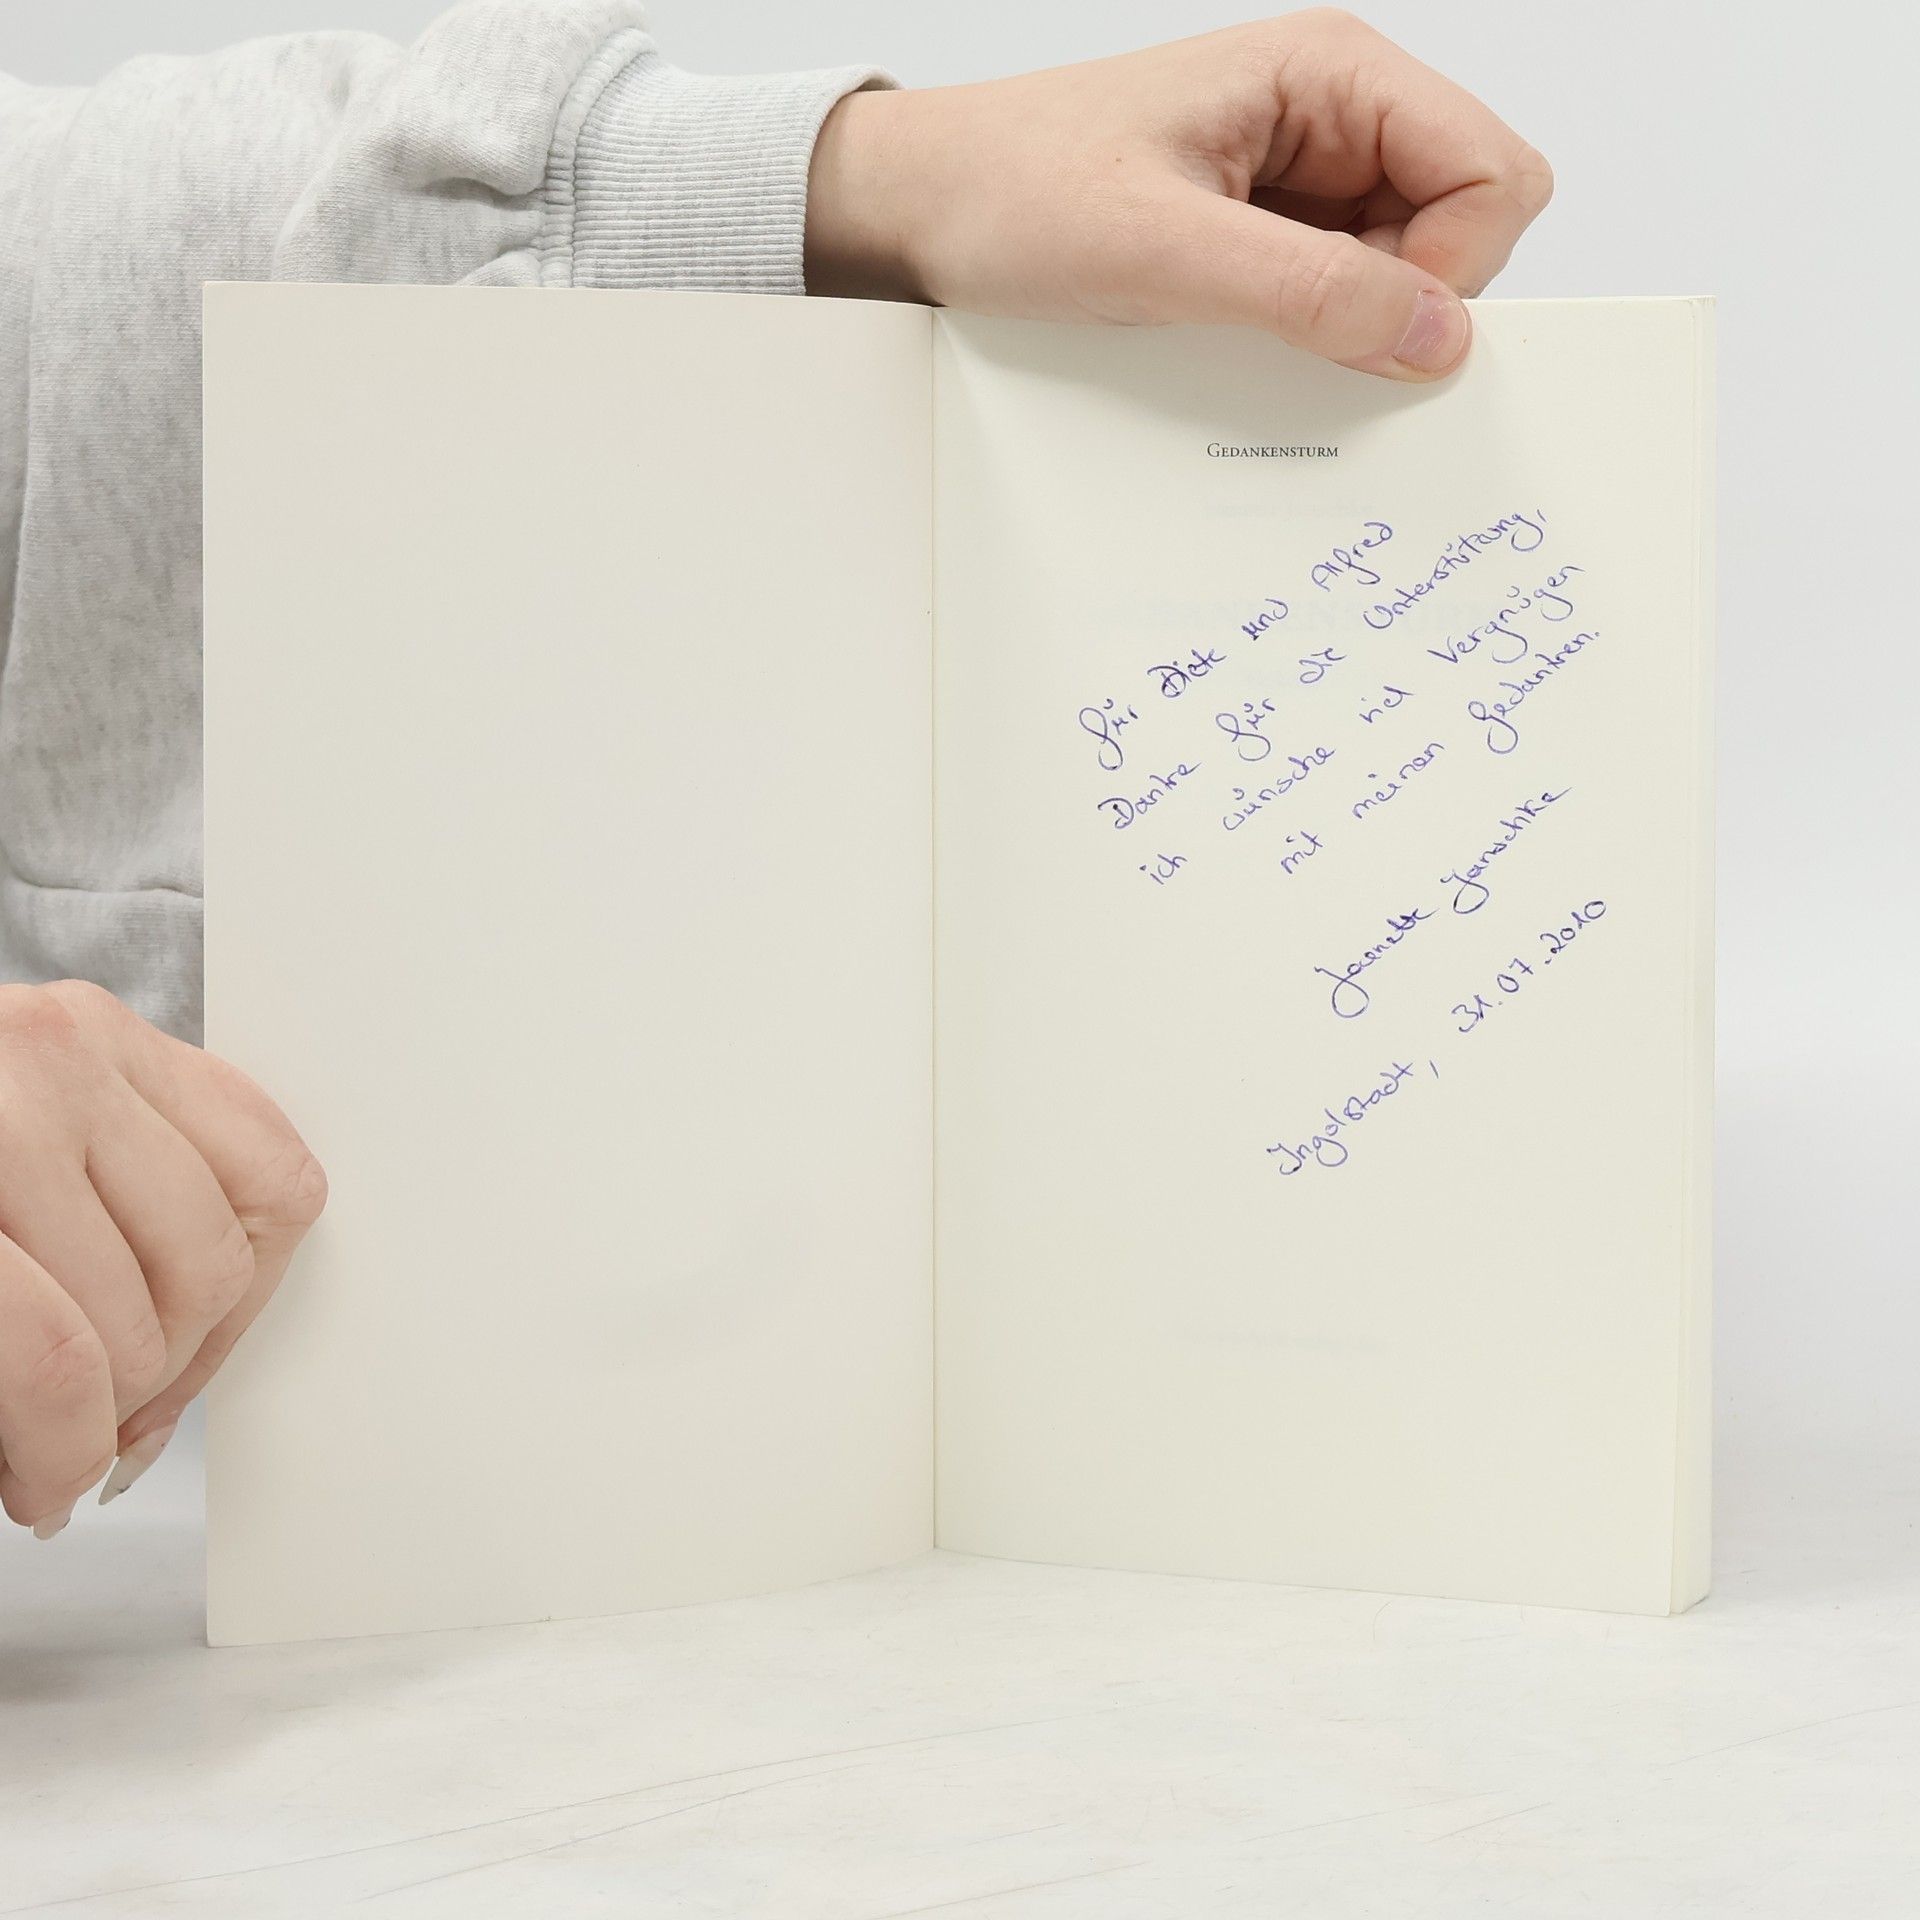 GEDANKENSTURM
für Diete und Alfred
Danke für die Unterstützung,
ich wünsche viel Vergnügen
mit meinen Gedanken.
Janschke
Ingolstadt, 31.07.2010